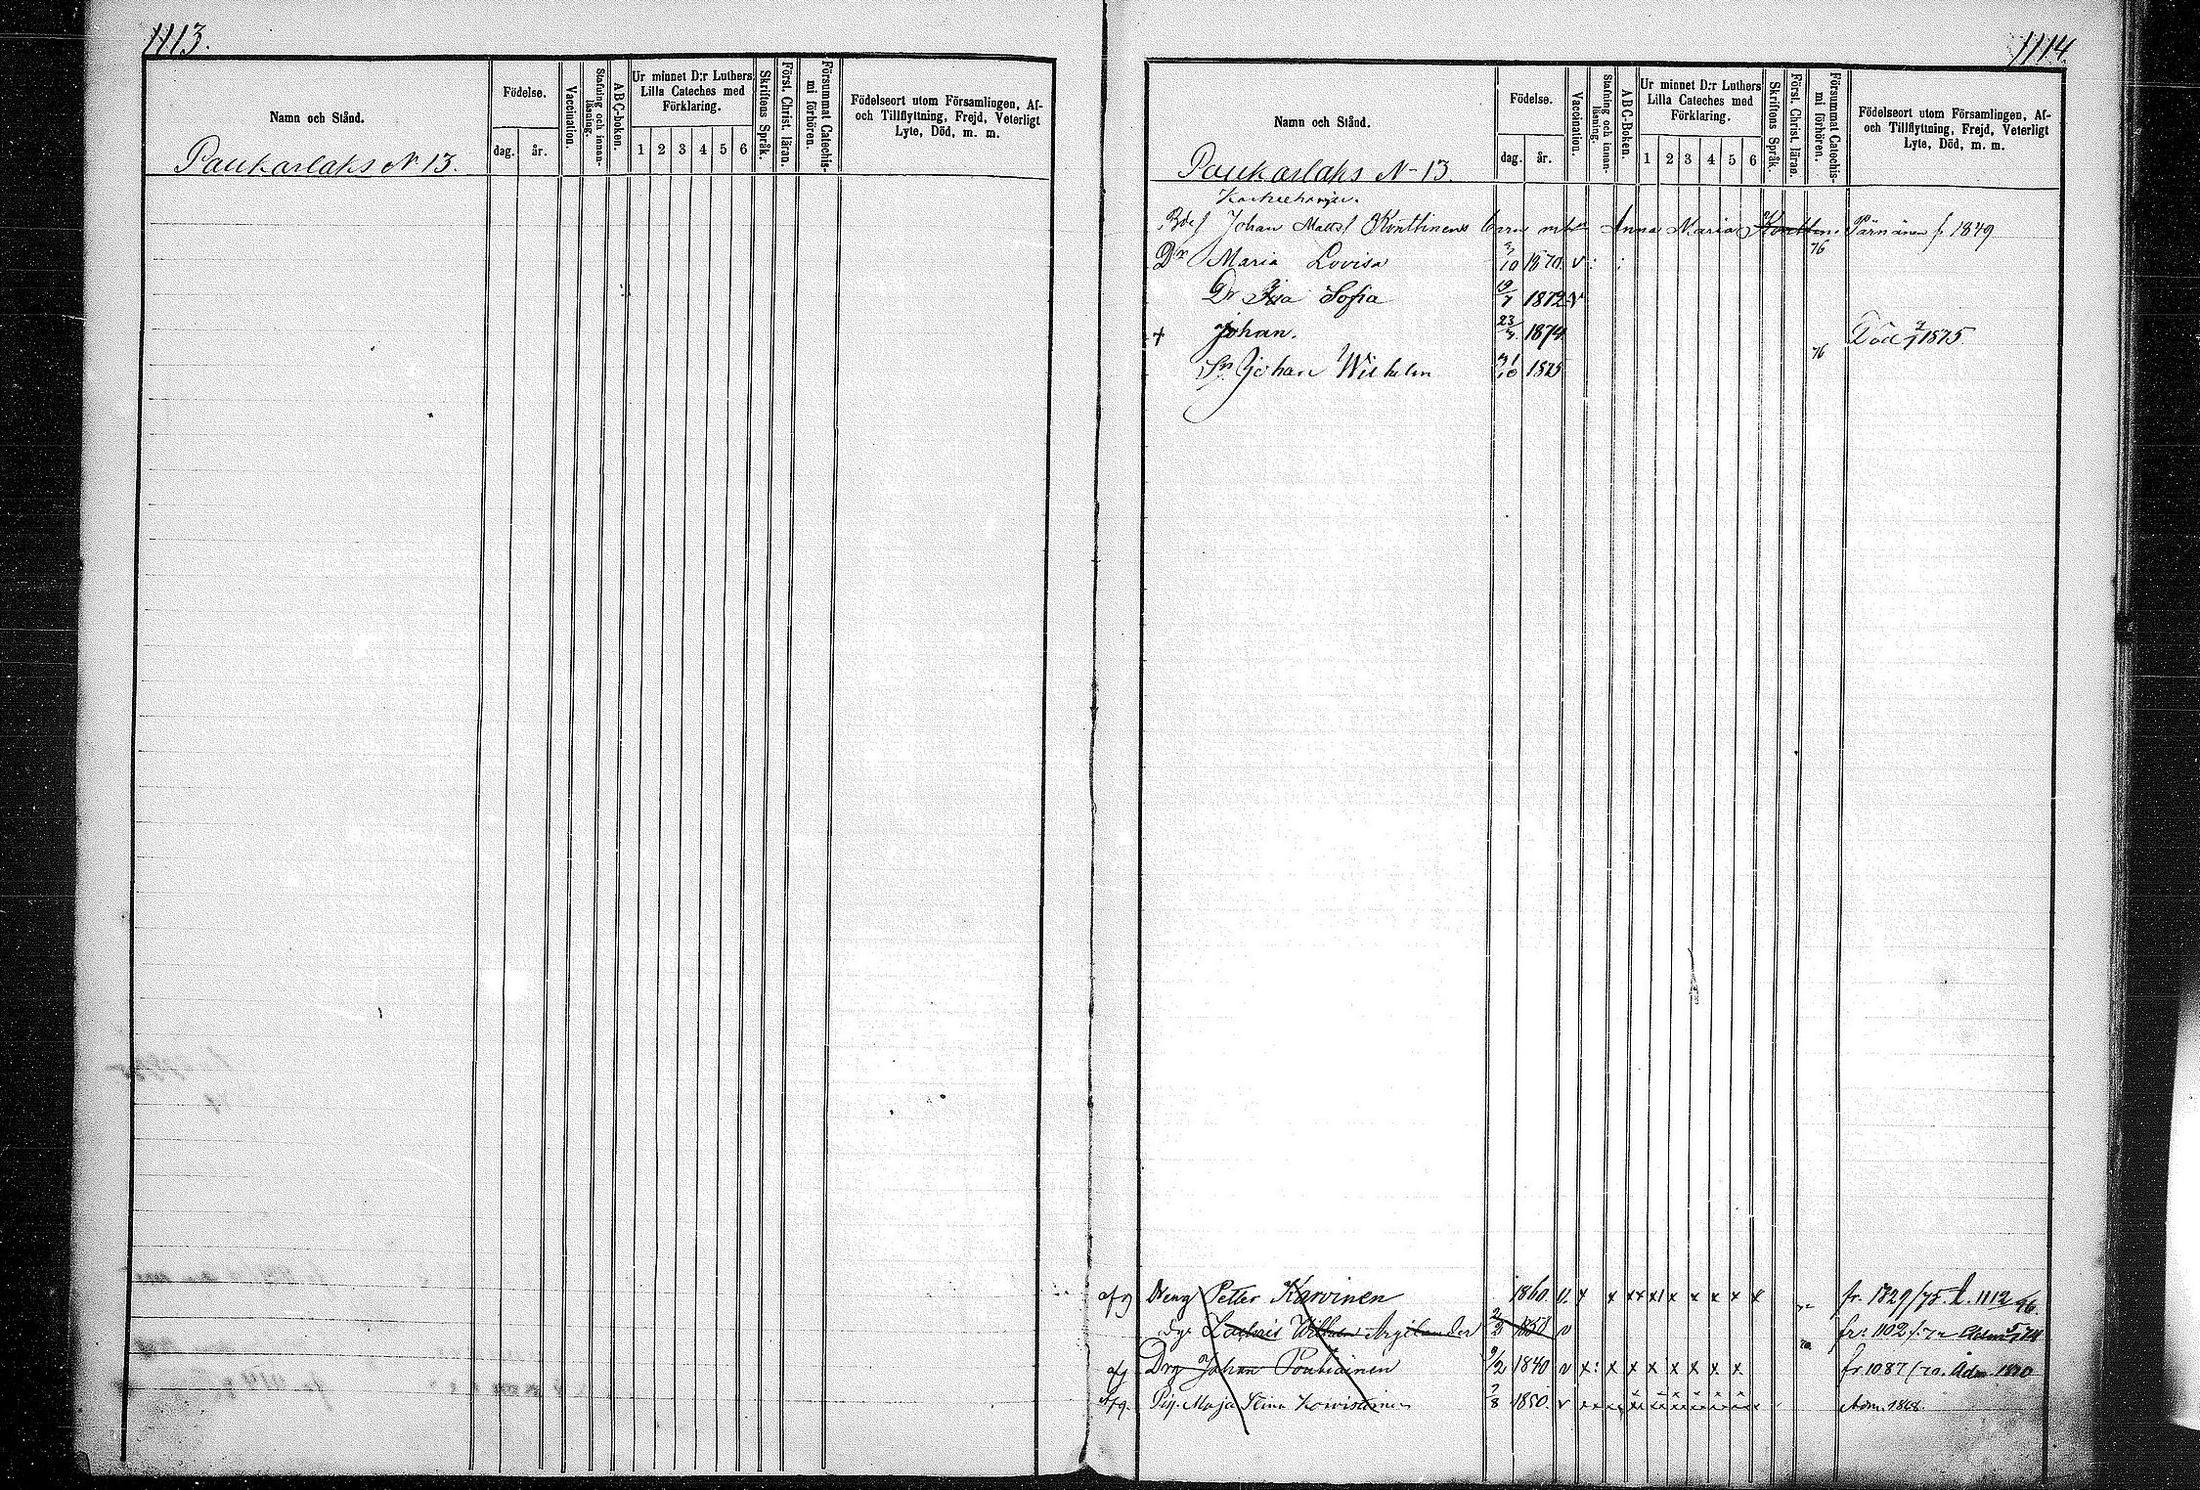 1113.
Namn och Stånd.
Födelse.
dag.
år.
Vaccination.
Stafning och innan-läsning.
A B C-boken.
Ur minnet D:r Luthers
Lilla Cateches med
Förklaring.
1 2 3 4 5 6
Skriftens Språk.
Först. Christ. läran.
Försummat Catechis-mi förhören.
Födelseort utom Församlingen, Af-
och Tillflyttning, Frejd, Veterligt
Lyte, Död, m. m.
Paukarlaks N 13.
1114.
Namn och Stånd.
Födelse.
dag.
år.
Vaccination.
Stafning och innan-läsning.
A B C-Boken.
Ur minnet D:r Luthers
Lilla Cateches med
Förklaring.
1 2 3 4 5 6
Skriftens Språk.
Först. Christ. läran.
Försummat Catechis-mi förhören.
Födelseort utom Församlingen, Af-
och Tillflyttning, Frejd, Veterligt
Lyte, Död, m. m.
Paukarlaks N 13.
Johan Matts Konttinens barn Anna Maria Pärnänen f 1849
Dr Maria Lovisa 10 1870 v 76
Dr Sofia 19/7 1872 v
+ Johan. 23 1874 Död 1875
Sn Johan Wilhelm 10 1875 76
afg Dreng Petter Karvinen 1860 v. x x xx x x x x x x fr. 1829/75. l. 1112/76.
Wilhelm Argilander 2/2 1858 v fr. 1102
afg Drg Johan Poutiainen 9/2 1840 v x: x x x x x x x. fr. 1087/70. Adm. 1870
afg. Pig. Maja Stina Koivistoinen 7/8 1850. v Adm. 1868.